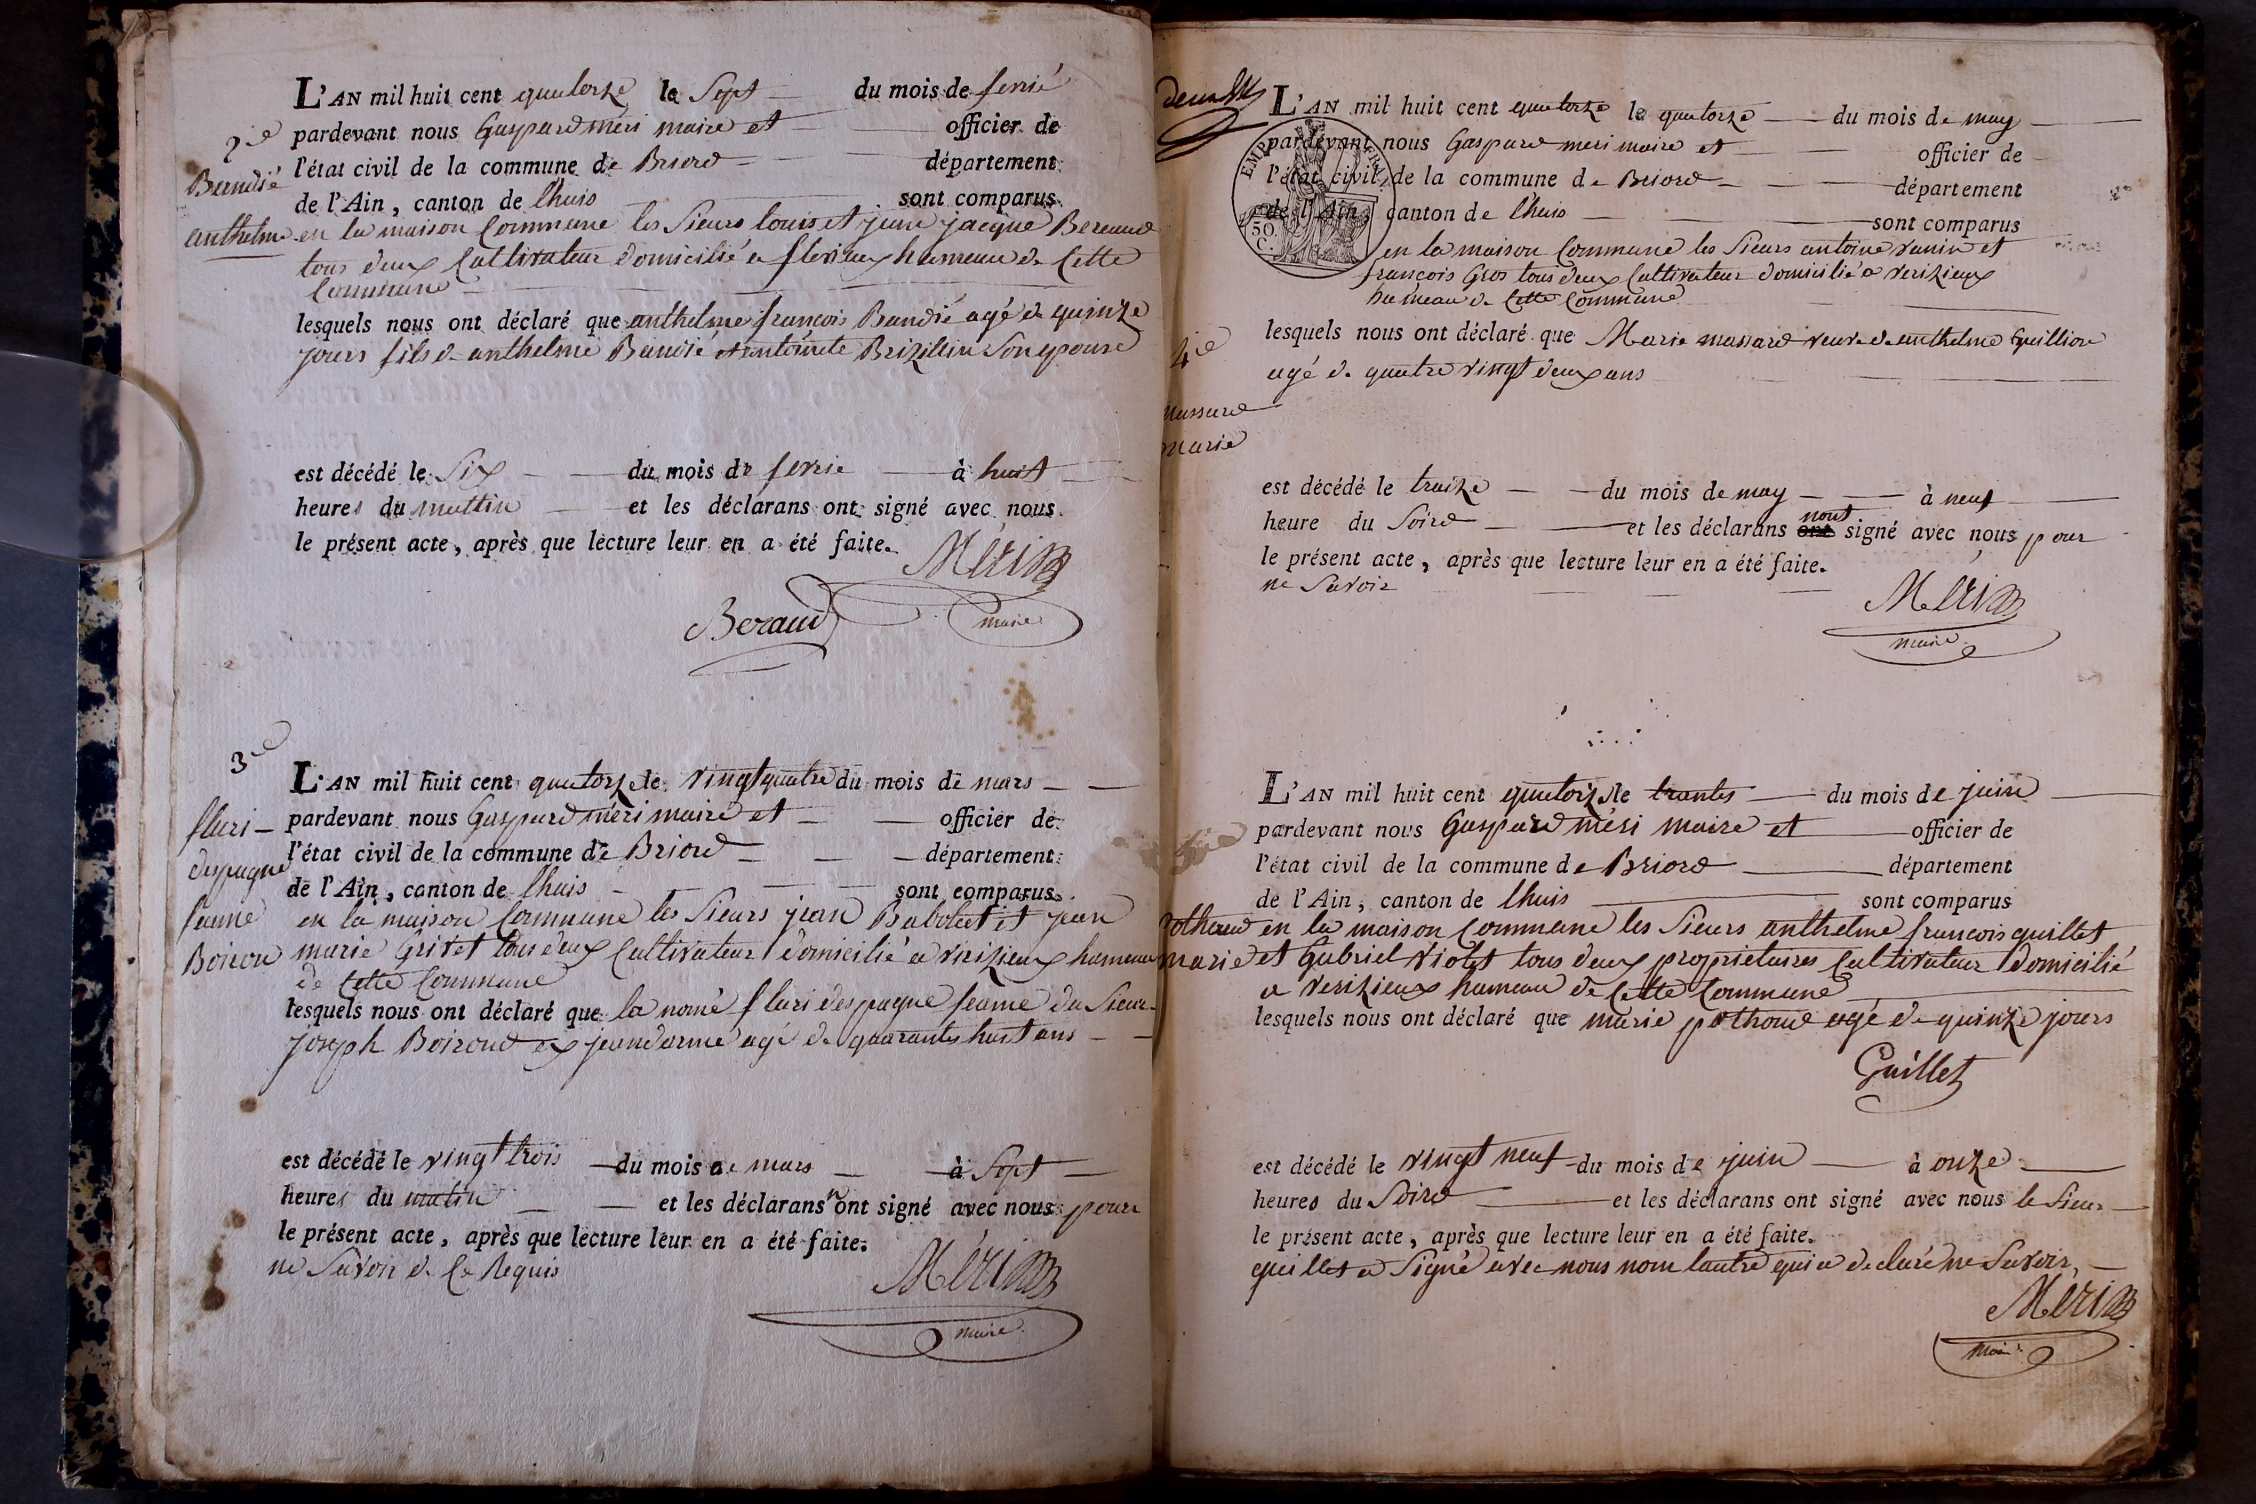 L'AN mil huit cent quatorze le Sept du mois de fevrié
pardevant nous Gaspard meri maire et officier de
l'état civil de la commune de Briord département
de l'Ain, canton de lhuis sont comparus
en la maison Commune les Sieurs louis et jean jacque Beraud
tous deux Cultivateur domicilié a flerieux hameau de Cette
Commune
lesquels nous ont déclaré que anthelme françois Bandié agé de quinze
jours fils d anthelme Bandié et antoinete Brizillin Son epouse
2e
Bandié
anthelme
est décédé le Six du mois de fevrie à huit
heures du mattin et les déclarans ont signé avec nous
le présent acte, après que lecture leur en a été faite.
Méri
maire
Beraud
3e
fluri
despagne
feame
Boiron
L'AN mil huit cent quatorze le vingt quatre du mois de mars
pardevant nous Gaspard meri maire et officier de
l'état civil de la commune de Briord département
de l'Ain, canton de lhuis sont comparus
en la maison Commune les Sieurs jean Babolet et jean
marie Grivet tous deux Cultivateur domicilié a virizieux hameau
de Cette Commune
lesquels nous ont déclaré que la nomé fluri despagne feame du Sieur
joseph Boiron ex jeandarme agé de quarante huit ans
est décédé le vingt trois du mois de mars à Sept
heures du matin et les déclarans n'ont signé avec nous pour
le présent acte, après que lecture leur en a été faite.
ne Savoir de Ce Requis
Méri
maire
L'AN mil huit cent quatorze le quatorze du mois de may
pardevant nous Gaspard meri maire et officier de
l'état civil de la commune de Briord département
de l'Ain, canton de lhuis sont comparus
50
C.
en la maison Commune les Sieurs antoine vanin et
françois Gros tous deux Cultivateur domicilié a verizieux
hameau de Cette Commune
lesquels nous ont déclaré que Marie massard veuve de anthelme Guillion
agé de quatre vingt deux ans
4e
massard
marie
est décédé le traize du mois de may à neuf
heure du Soire et les déclarans ont nont signé avec nous pour
le présent acte, après que lecture leur en a été faite.
ne Savoir
Méri
maire
L'AN mil huit cent quatorze le trantes du mois de juin
pardevant nous Gaspard meri maire et officier de
l'état civil de la commune de Briord département
de l'Ain, canton de lhuis sont comparus
pothoud
marie
en la maison Commune les Sieurs anthelme françois guillet
et Gabriel violet tous deux proprietaires Cultivateur domicilié
a verizieux hameau de Cette Commune
lesquels nous ont déclaré que marie pothoud agé de quinze jours
Guillet
est décédé le vingt neuf du mois de juin à onze
heures du Soire et les déclarans ont signé avec nous le Sieur
le présent acte, après que lecture leur en a été faite.
guillet a Signé avec nous nom lautre qui a declaré ne Savoir
Méri
maire